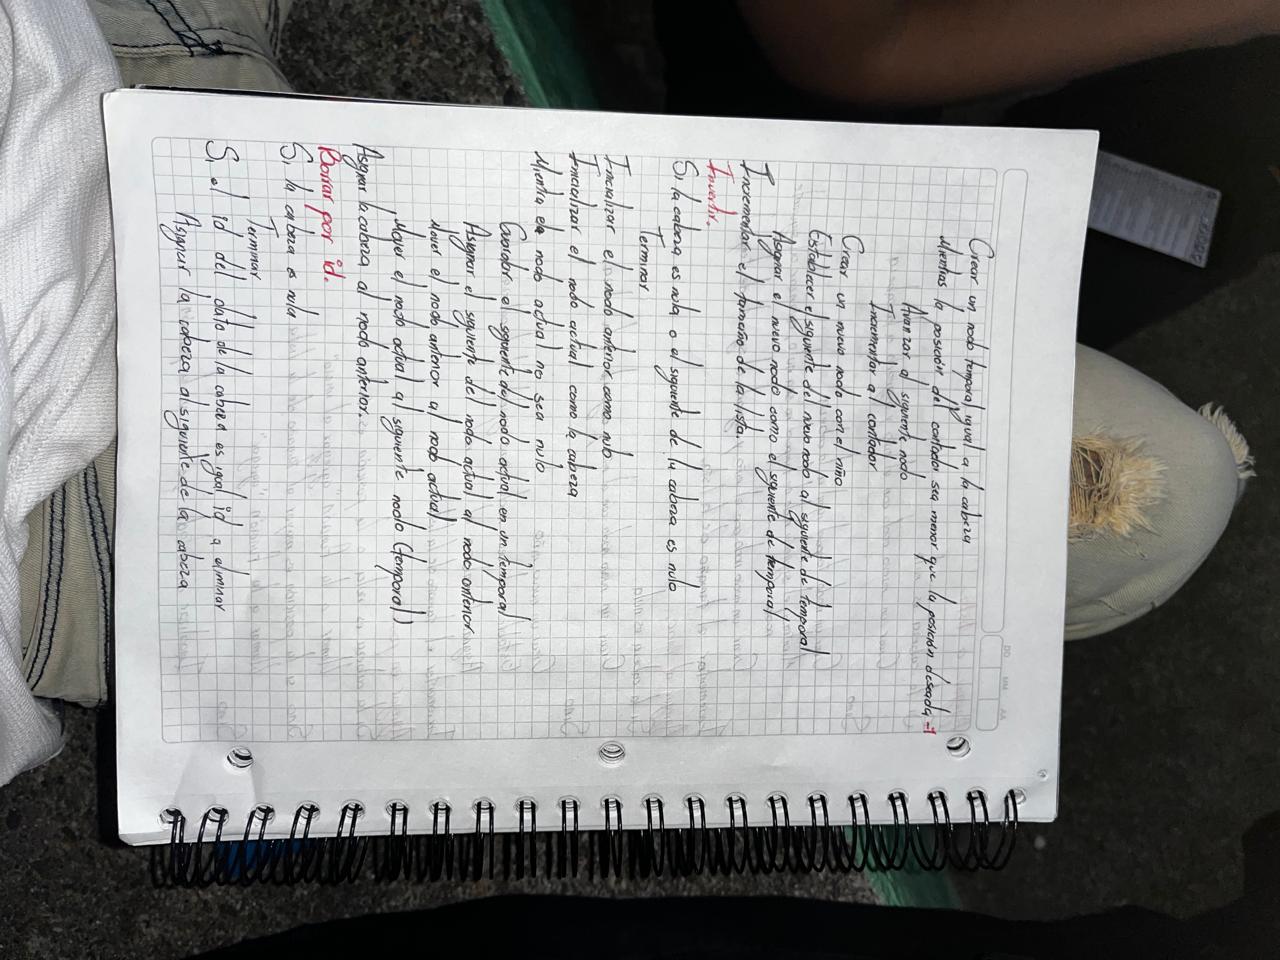 Crear un nodo temporal igual a la cabeza
Mientras la posición del contador sea menor que la posición deseada -1
Avanzar al siguiente nodo
Incrementar al contador
Crear un nuevo nodo con el niño
Establecer el siguiente del nuevo nodo al siguiente de temporal
Asignar el nuevo nodo como el siguiente de temporal
Incrementar el tamaño de la lista.
Invertir.
Si la cabeza es nula o el siguiente de la cabeza es nulo
Terminar
Inicializar el nodo anterior como nulo
Inicializar el nodo actual como la cabeza
Mientra el nodo actual no sea nulo
Guardar el siguiente del nodo actual en un temporal
Asignar el siguiente del nodo actual al nodo anterior
Mover el nodo anterior al nodo actual
Mover el nodo actual al siguiente nodo (temporal)
Asignar la cabeza al nodo anterior.
Borrar por id.
Si la cabeza es nula
Terminar
Si el id del dato de la cabeza es igual id a eliminar
Asignar la cabeza al siguiente de la cabeza
DD MM AA